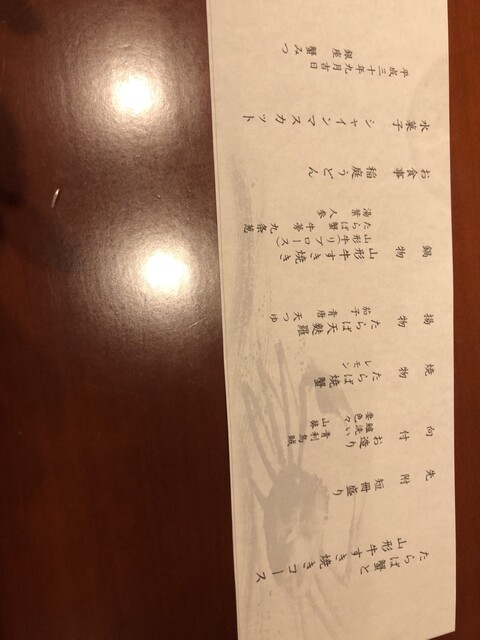 たらば蟹と
山形牛すき焼き コース
先附
短冊盛り
向付
お造り
鱸洗い
妻色々
焼物
たらば蟹焼
レモン
揚物
たらば天麩羅
茄子 青唐 天つゆ
鍋物
山形牛すき焼き
山形牛(リブロース)
たらば蟹 牛蒡 九条葱
湯葉 人参
お食事
稲庭うどん
水菓子
シャインマスカット
平成三十年九月吉日
銀座 蟹みつ